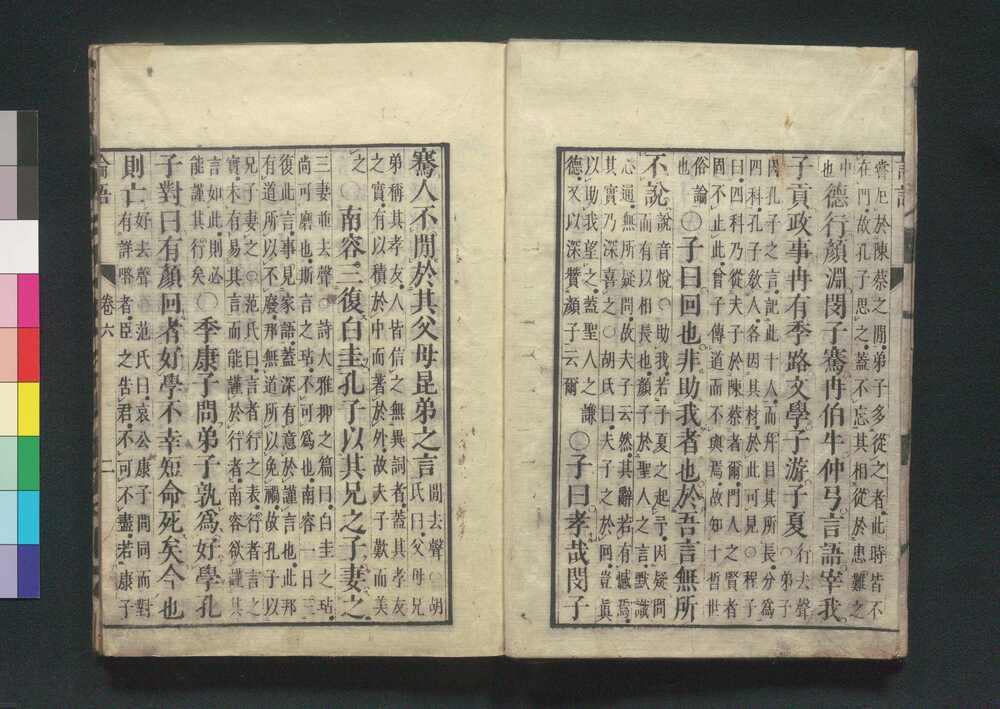 嘗厄於陳蔡之閒弟子多從之者此時皆不
在門故孔子思之蓋不忘其相從於患難之
中也 德行顏淵閔子騫冉伯牛仲弓言語宰我
子貢政事冉有季路文學子游子夏 行去聲○弟子
因孔子之言記此十人而并目其所長分爲
四科孔子敎人各因其材於此可見○程子
曰四科乃從夫子於陳蔡者爾門人之賢者
固不止此曾子傳道而不與焉故知十哲世
俗論也 ○子曰回也非助我者也於吾言無所
不說 說音悅○助我若子夏之起予因疑問
而有以相長也顏子於聖人之言默識
心通無所疑問故夫子云然其辭若有憾焉
其實乃深喜之○胡氏曰夫子之於回豈眞
以助我望之蓋聖人之謙
德又以深贊顏子云爾 ○子曰孝哉閔子
騫人不閒於其父母昆弟之言 閒去聲○胡
氏曰父母兄
弟稱其孝友人皆信之無異詞者蓋其孝友
之實有以積於中而著於外故夫子歎而美
之 ○南容三復白圭孔子以其兄之子妻之
三妻並去聲○詩大雅抑之篇曰白圭之玷
尚可磨也斯言之玷不可爲也南容一日三
復此言事見家語蓋深有意於謹言也此邦
有道所以不廢邦無道所以免禍故孔子以
兄子妻之○范氏曰言者行之表行者言之
實未有易其言而能謹於行者南容欲謹其
言如此則必
能謹其行矣 ○季康子問弟子孰爲好學孔
子對曰有顏回者好學不幸短命死矣今也
則亡 好去聲○范氏曰哀公康子問同而對
有詳略者臣之告君不可不盡若康子
論語 卷六 二